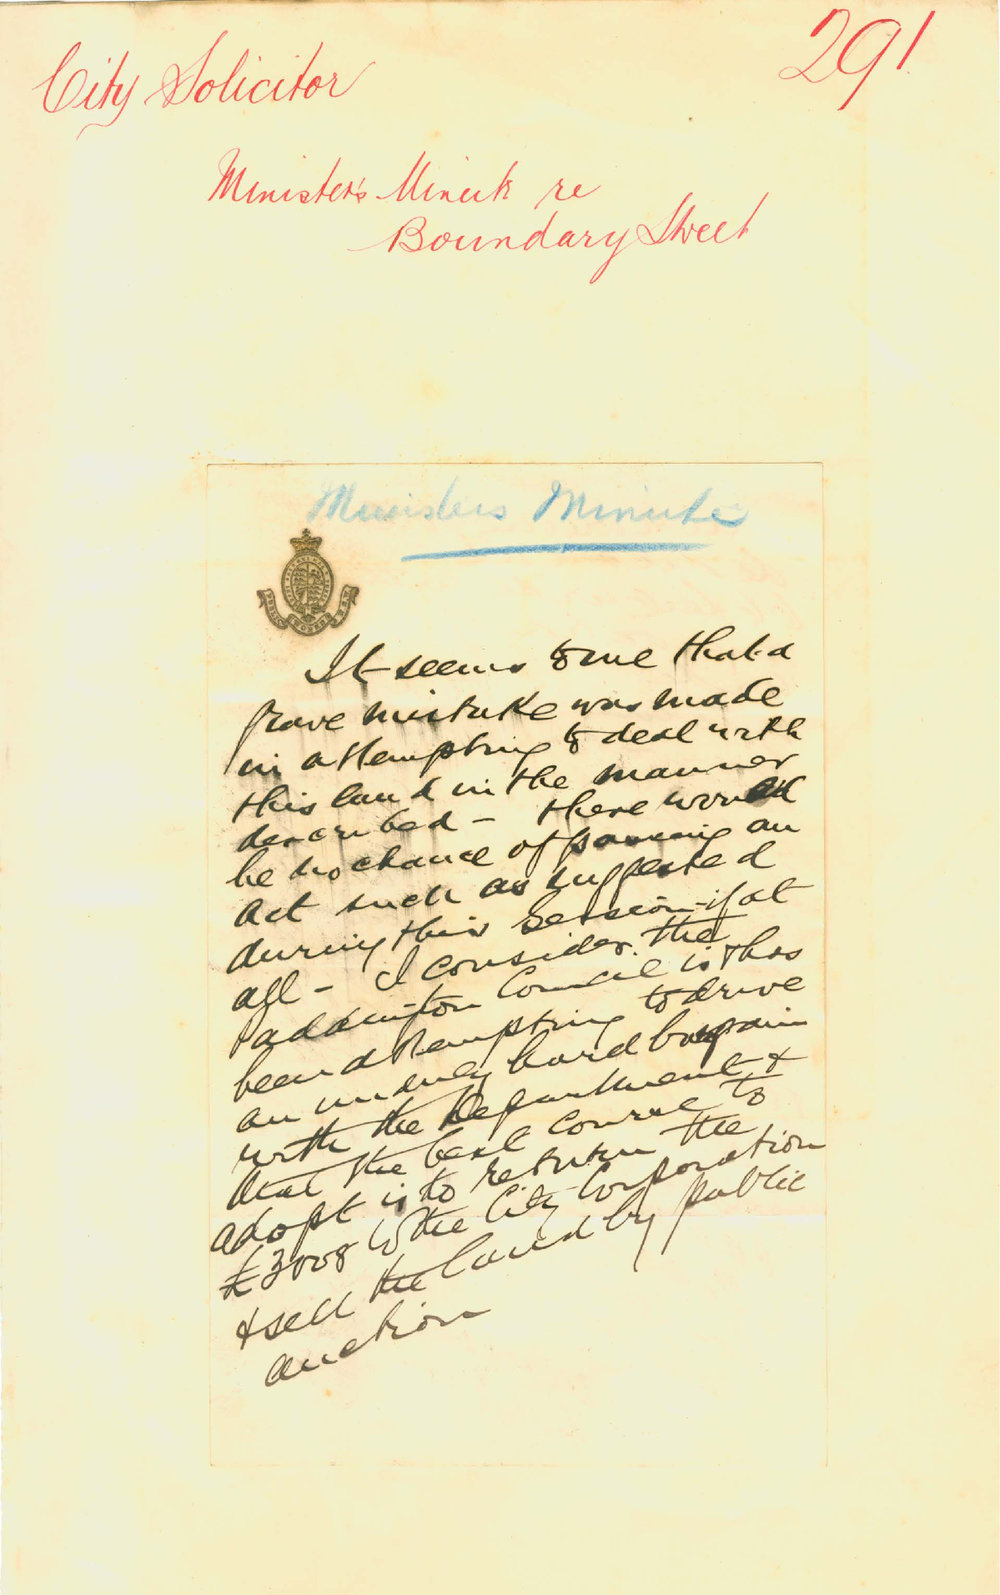 291
City Solicitor
Minister's Minute re
Boundary Street
Ministers Minute
PUBLIC WORKS N.S.W.
It seems to me that a
grave mistake was made
in attempting to deal with
this land in the manner
described - there would
be no chance of passing an
Act such as suggested
during this session if at
all - I consider the
Paddington Council is & has
been attempting to drive
an unduly hard bargain
with the Department, &
that the best course to
adopt is to return the
£3008 to the City Corporation
& sell the land by public
auction